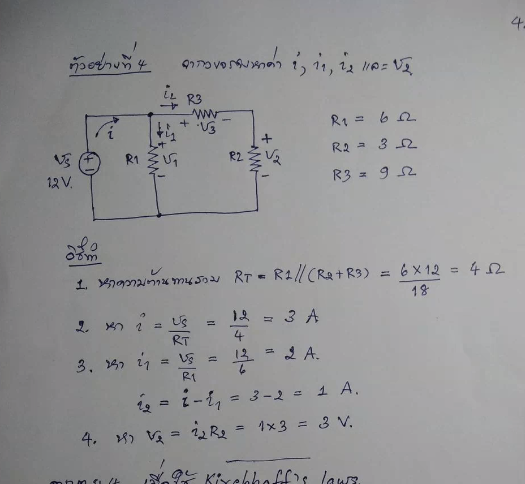 4.
ตัวอย่างที่ 4 จากวงจรจงหาค่า i, i1, i2 และ V2
i2 R3
i + V3 -
i1
Vs + - 12V.
R1 + V1 -
R2 + V2 -
R1 = 6 Ω
R2 = 3 Ω
R3 = 9 Ω
วิธีทำ
1. หาความต้านทานรวม RT = R1//(R2+R3) = 6×12/18 = 4 Ω
2. หา i = Vs/RT = 12/4 = 3 A
3. หา i1 = Vs/R1 = 12/6 = 2 A.
i2 = i - i1 = 3-2 = 1 A.
4. หา V2 = i2R2 = 1×3 = 3 V.
Kirchhoff's laws